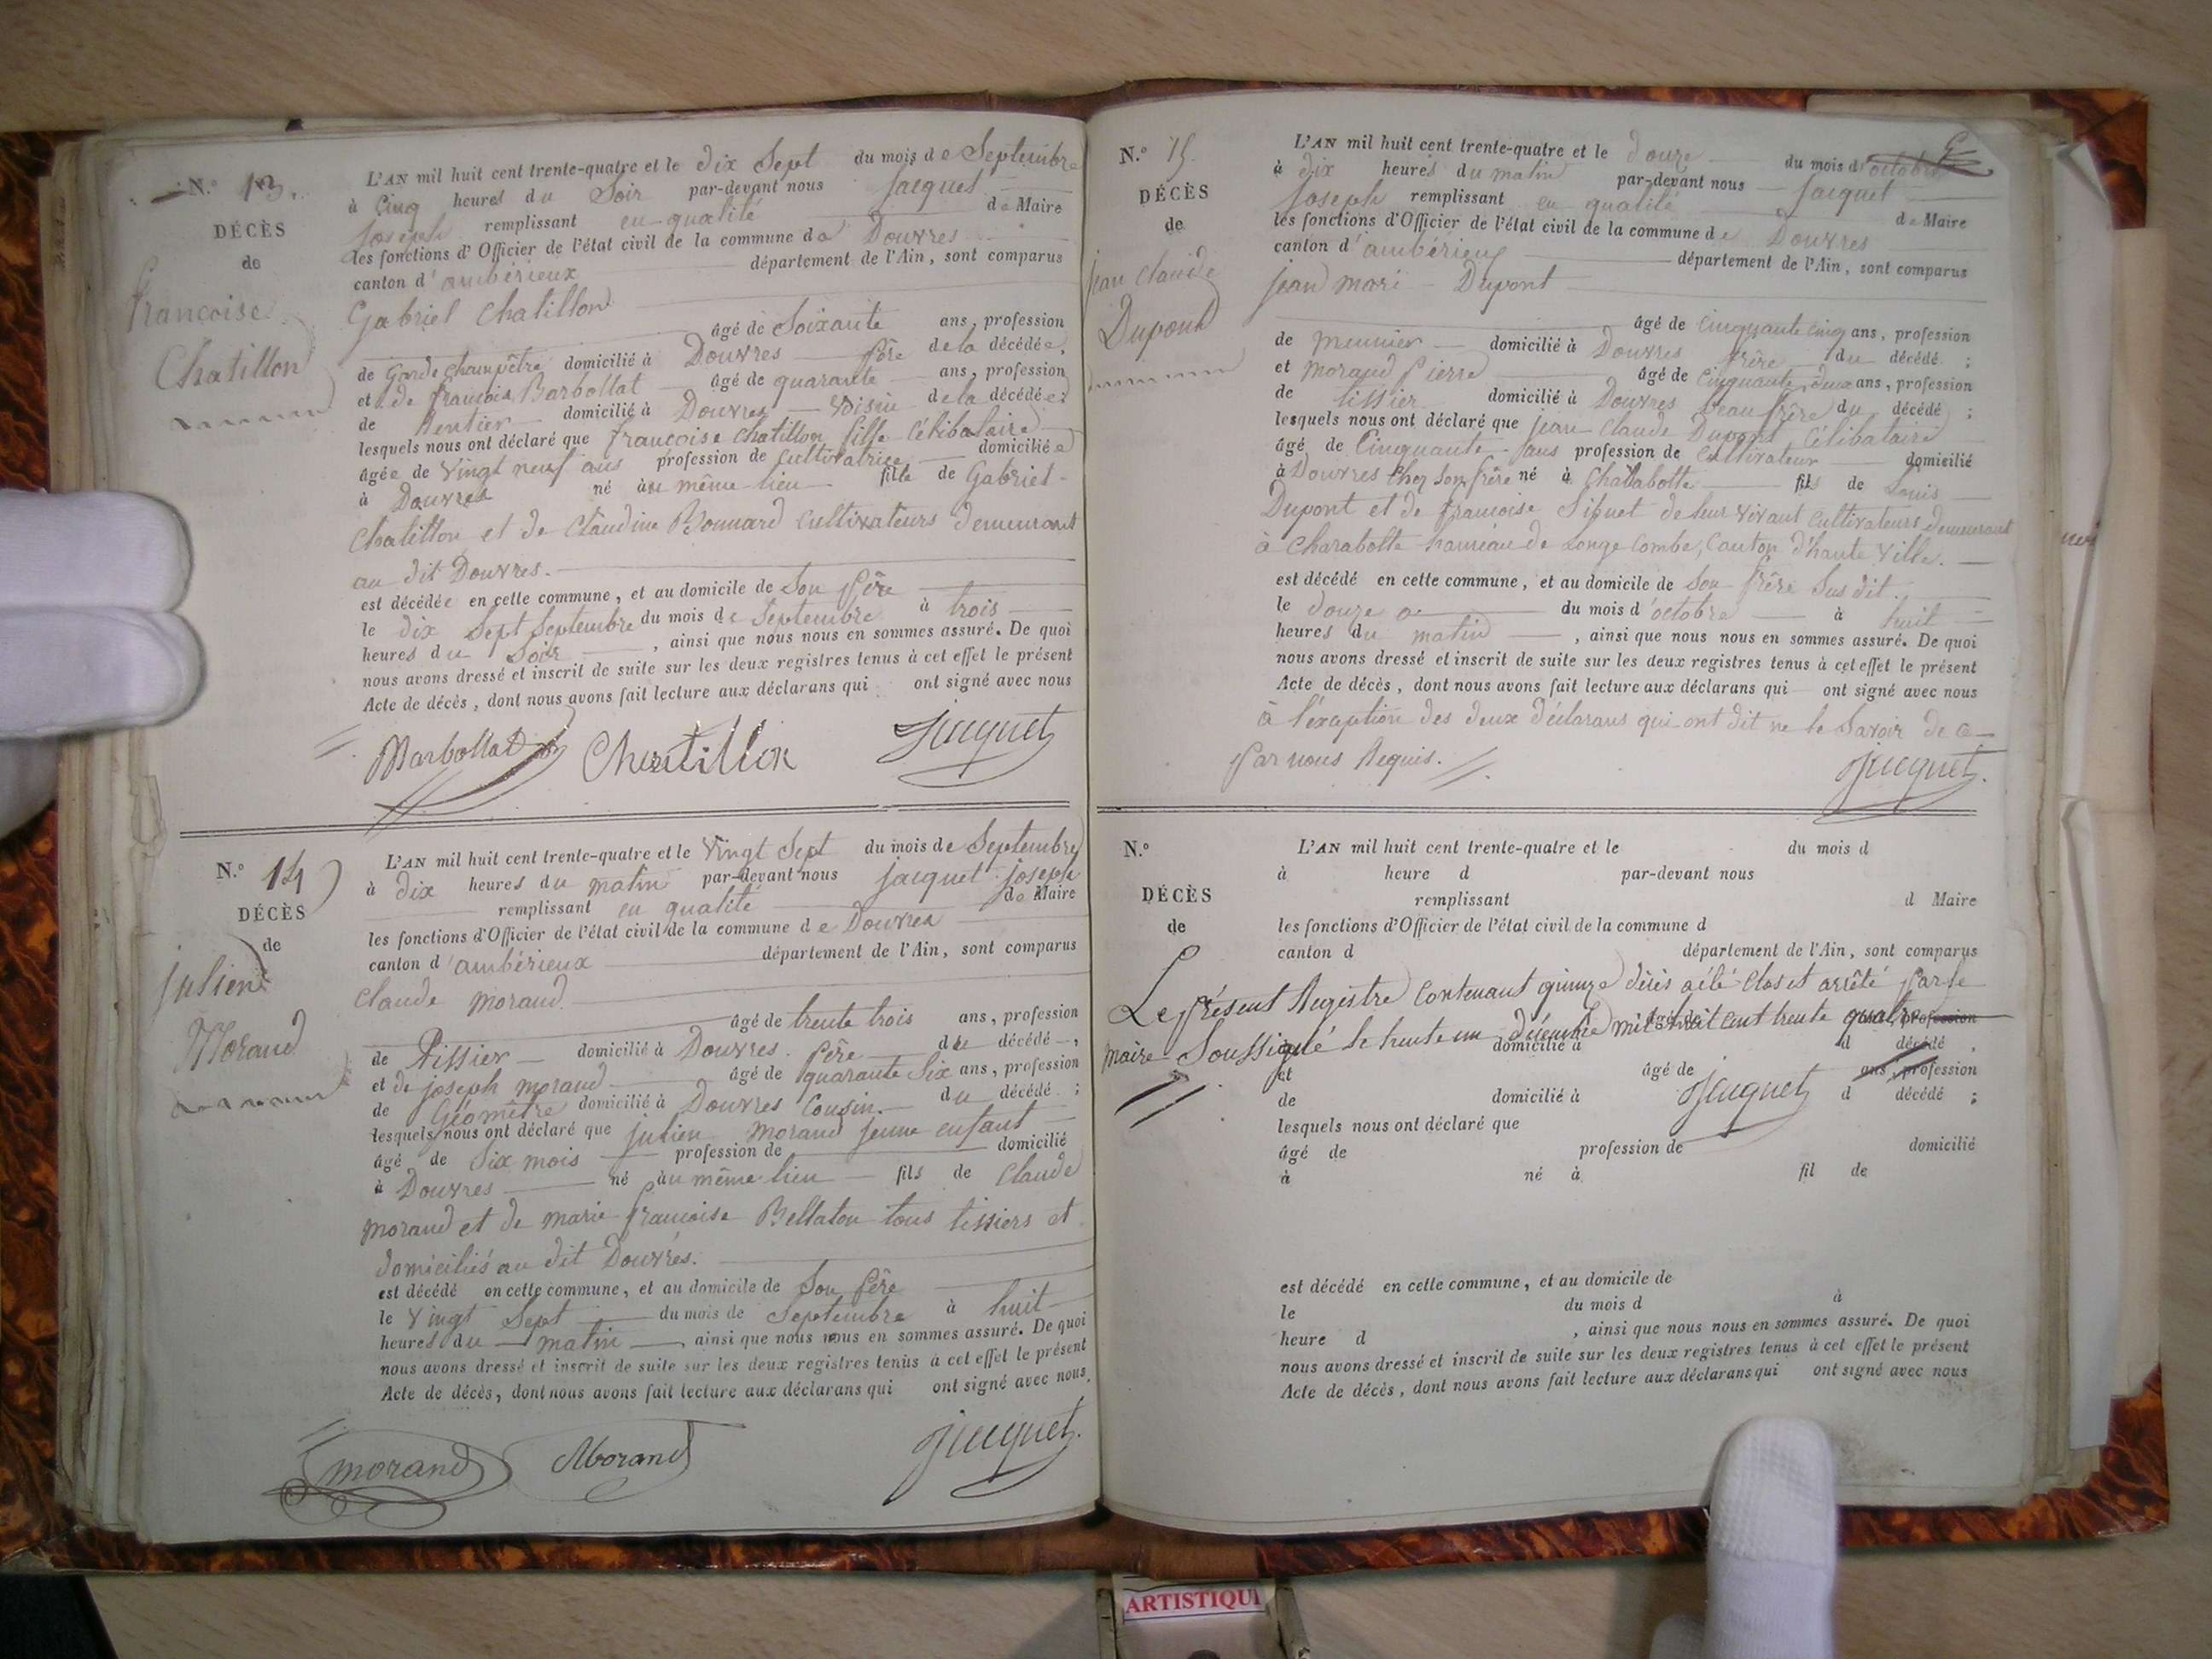 N.° 13.
DÉCÈS
de
françoise
Chatillon
L'AN mil huit cent trente-quatre et le dix Sept du mois de Septembre
à Cinq heures du Soir par-devant nous Jacquet
joseph remplissant en qualité de Maire
les fonctions d'Officier de l'état civil de la commune de Douvres
canton d'ambérieux département de l'Ain, sont comparus
Gabriel Chatillon
âgé de Soixante ans, profession
de Garde champêtre domicilié à Douvres Père de la décédée,
et de françois Barbollat âgé de quarante ans, profession
de Rentier domicilié à Douvres voisin de la décédée;
lesquels nous ont déclaré que françoise chatillon fille Célibataire
âgée de vingt neuf ans profession de cultivatrice domiciliée
à Douvres né au même lieu fille de Gabriel
Chatillon et de Claudine Bonnard cultivateurs demeurant
au dit Douvres.
est décédée en cette commune, et au domicile de Son Père
le dix Sept Septembre du mois de Septembre à trois
heures du Soir, ainsi que nous nous en sommes assuré. De quoi
nous avons dressé et inscrit de suite sur les deux registres tenus à cet effet le présent
Acte de décès, dont nous avons fait lecture aux déclarans qui ont signé avec nous
Barbollat Chatillon Jacquet
N.° 14
DÉCÈS
de
julien
Morand
L'AN mil huit cent trente-quatre et le Vingt Sept du mois de Septembre
à dix heures du matin par-devant nous jacquet joseph
remplissant en qualité de Maire
les fonctions d'Officier de l'état civil de la commune de Douvres
canton d'ambérieux département de l'Ain, sont comparus
Claude morand
âgé de trente trois ans, profession
de Tissier domicilié à Douvres. Père du décédé,
et de joseph morand âgé de quarante Six ans, profession
de Géomètre domicilié à Douvres Cousin. du décédé;
lesquels nous ont déclaré que julien Morand jeune enfant
âgé de Six mois profession de domicilié
à Douvres né au même lieu fils de Claude
morand et de marie françoise Bellaton tous tissiers et
domiciliés au dit Douvres.
est décédé en cette commune, et au domicile de Son Père
le Vingt Sept du mois de Septembre à huit
heures du matin ainsi que nous nous en sommes assuré. De quoi
nous avons dressé et inscrit de suite sur les deux registres tenus à cet effet le présent
Acte de décès, dont nous avons fait lecture aux déclarans qui ont signé avec nous,
morand Morand Jacquet
N.° 15.
DÉCÈS
de
jean Claude
Dupont
L'AN mil huit cent trente-quatre et le douze du mois d'octobre
à dix heures du matin par-devant nous Jacquet
Joseph remplissant en qualité de Maire
les fonctions d'Officier de l'état civil de la commune de Douvres
canton d'ambérieux département de l'Ain, sont comparus
jean mari Dupont
âgé de cinquante cinq ans, profession
de meunier domicilié à Douvres frère du décédé;
et morand Pierre âgé de Cinquante deux ans, profession
de tissier domicilié à Douvres beau frère du décédé;
lesquels nous ont déclaré que jean Claude Dupont Célibataire
âgé de Cinquante ans profession de Cultivateur domicilié
à Douvres chez Son frère né à Charabotte fils de Louis
Dupont et de françoise Sibuet de leur vivant cultivateurs demeurant
à Charabotte hameau de Longe Combe, Canton d'haute Ville.
est décédé en cette commune, et au domicile de Son frère Sus dit.
le douze du mois d'octobre à huit
heures du matin, ainsi que nous nous en sommes assuré. De quoi
nous avons dressé et inscrit de suite sur les deux registres tenus à cet effet le présent
Acte de décès, dont nous avons fait lecture aux déclarans qui ont signé avec nous
à l'éxception des deux déclarans qui ont dit ne le Savoir de ce
par nous Requis.
Jacquet
N.°
DÉCÈS
de
L'AN mil huit cent trente-quatre et le du mois d
à heure d par-devant nous
remplissant d Maire
les fonctions d'Officier de l'état civil de la commune d
canton d département de l'Ain, sont comparus
Le présent Registre Contenant quinze décès a été Clos et arrêté par le
maire Soussigné le trente un décembre mil huit cent trente quatre
âgé de ans, profession
domicilié à d décédé,
et âgé de ans, profession
de domicilié à d décédé;
Jacquet
lesquels nous ont déclaré que
âgé de profession de domicilié
à né à fil de
est décédé en cette commune, et au domicile de
le du mois d à
heure d, ainsi que nous nous en sommes assuré. De quoi
nous avons dressé et inscrit de suite sur les deux registres tenus à cet effet le présent
Acte de décès, dont nous avons fait lecture aux déclarans qui ont signé avec nous
ARTISTIQU